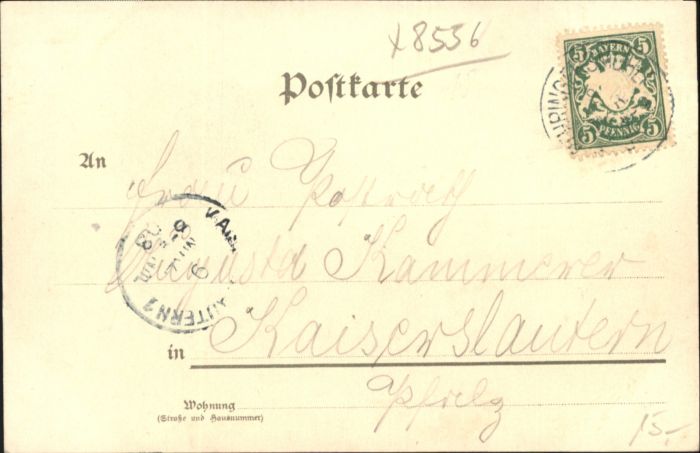 x8536
Postkarte
5 BAYERN 5
5 PFENNIG 5
An
Frau Postrath
Augusta Kammerer
in Kaiserslautern
Pfalz
Wohnung
(Straße und Hausnummer)
15.-